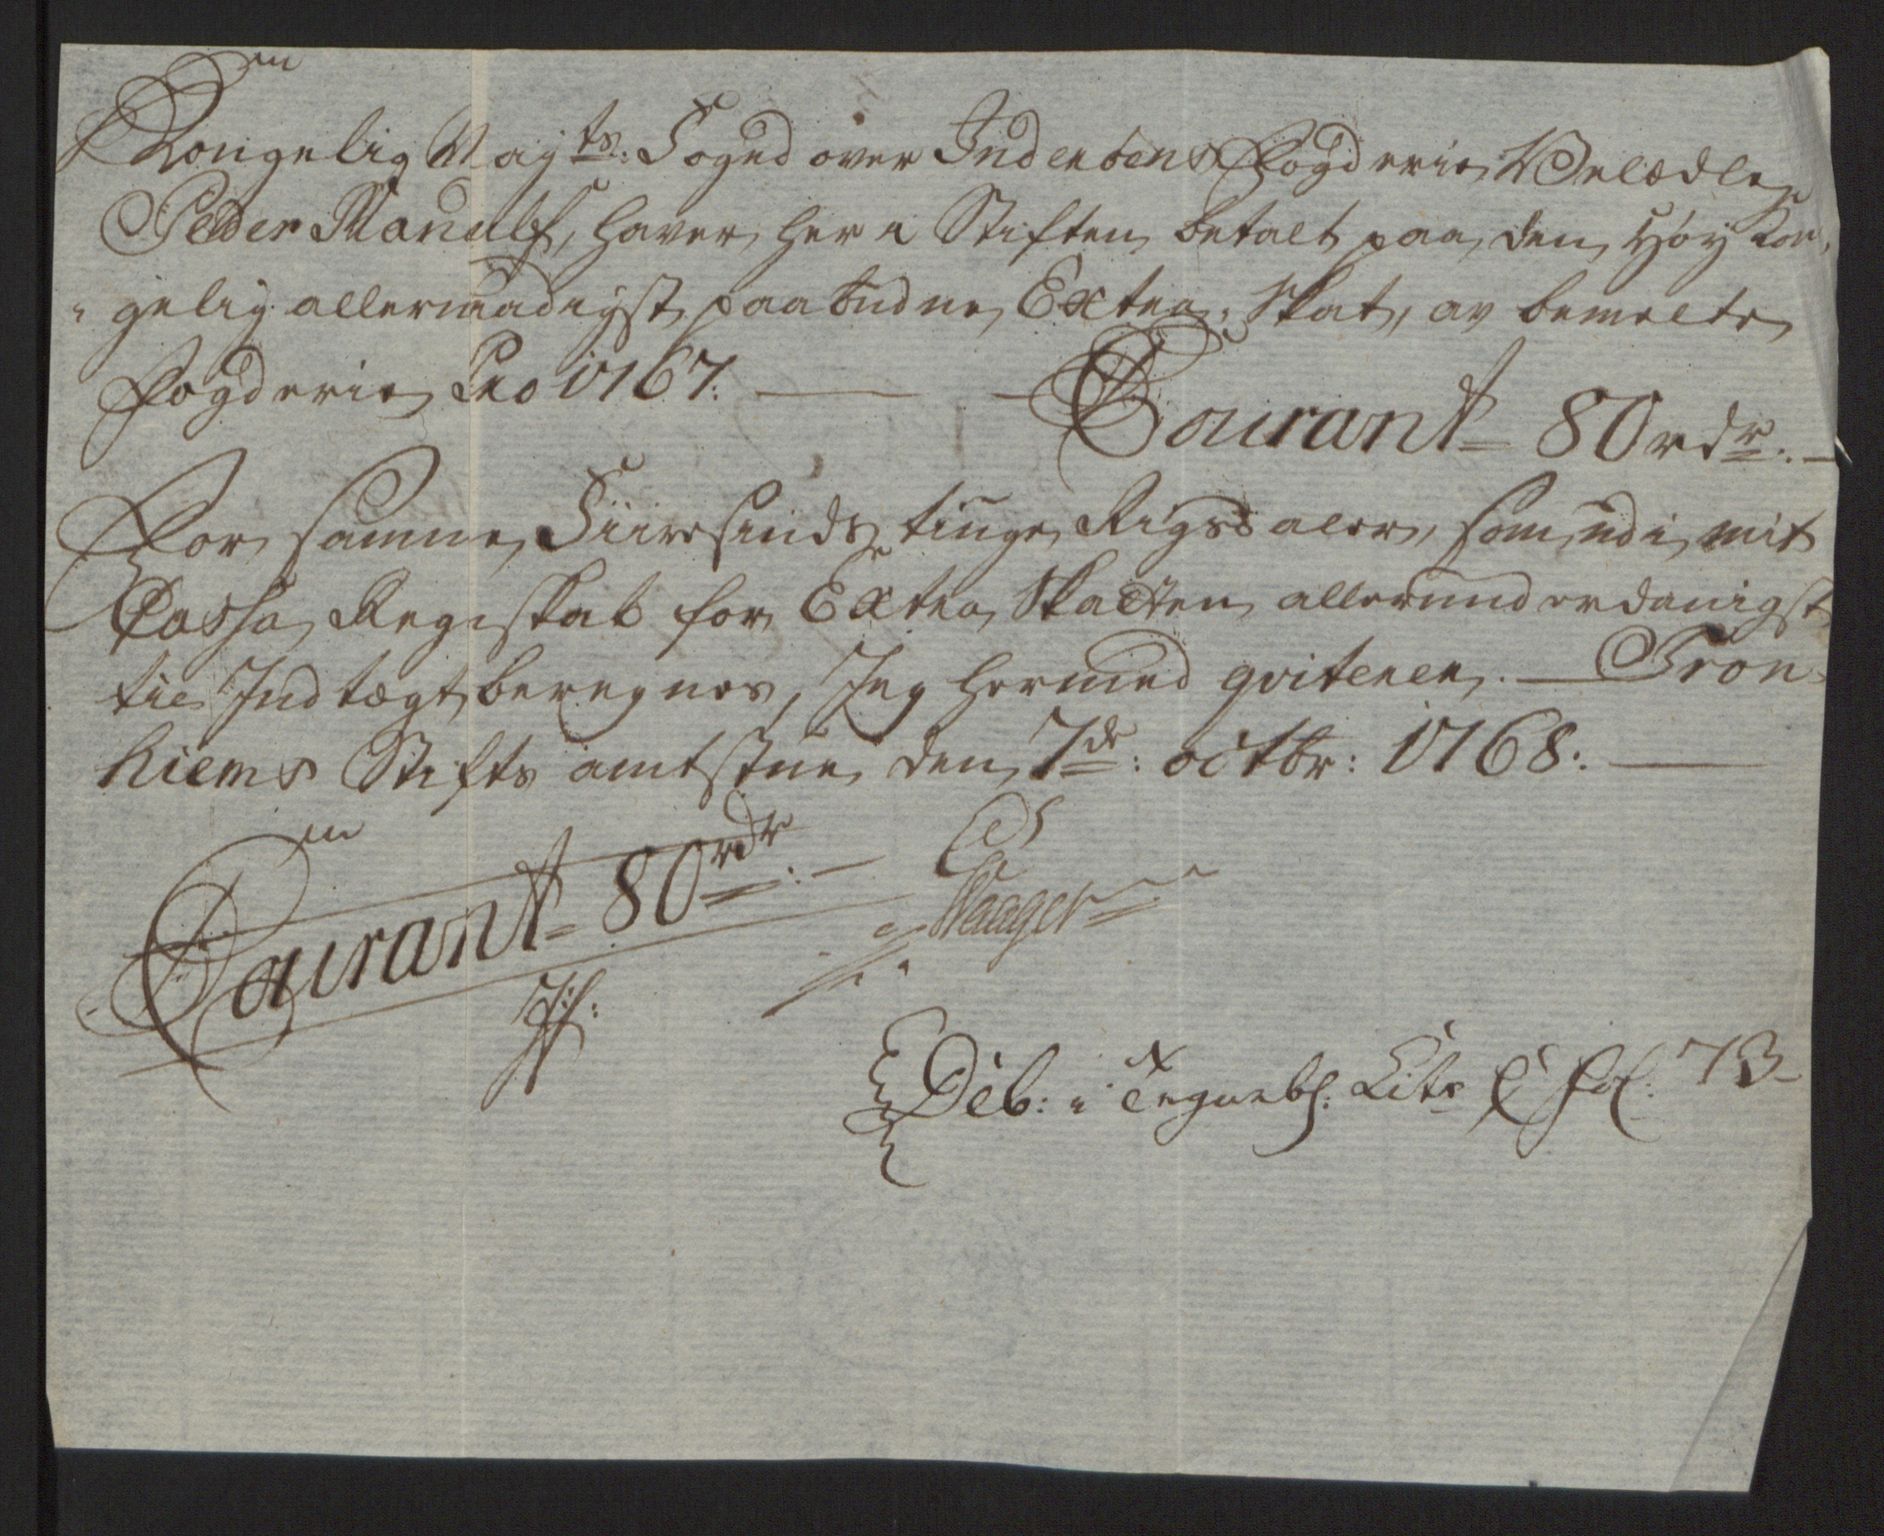 Kongelig Mayts: Foged over Inderöens Fogderie Velædle
Peder Randulf, haver her i Stiften betalt paa den Höy Kon,
gelig allernaadigst paabudne Extra Skat, av bemelte
Fogderie Pro 1767. Courant 80 rdr.
For samme Fiiresinds tiuge Rigsdaler, som udi mit
Cassa Regnskab for Extra Skatten allerunderdanigst
til Indtægt beregnes, Jeg hermed qviterer. Tron
hiems Stifts amtstue den 7de: octbr: 1768.
Courant 80 rdr
Deb: i Tegnebh: Litr fol: 73